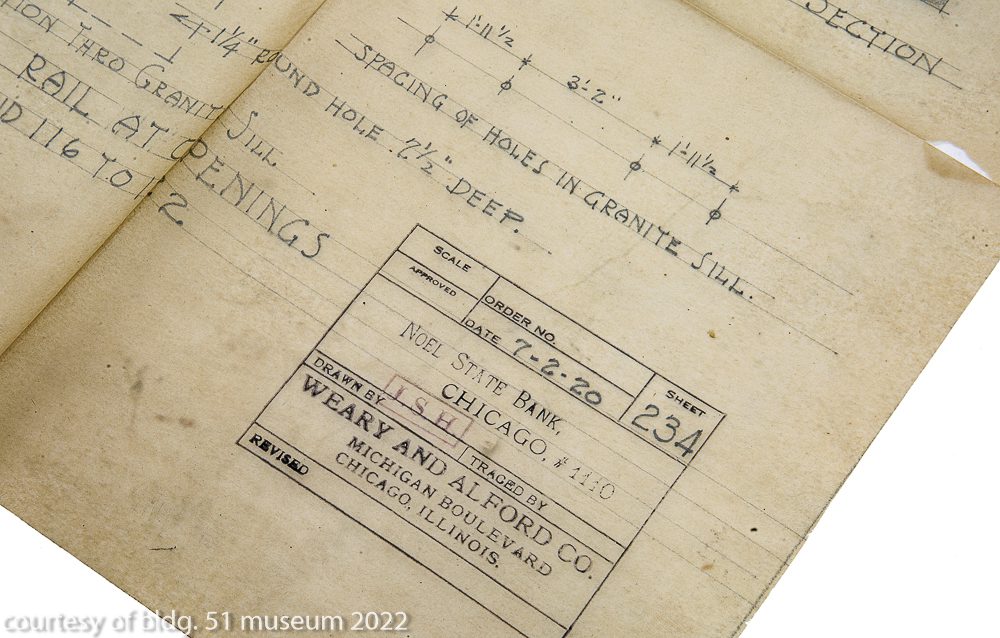 SECTION
1'-11 1/2
3'-2"
1'-11 1/2
SPACING OF HOLES IN GRANITE SILL.
1 1/4" ROUND HOLE 7 1/2" DEEP.
THRO GRANITE SILL
RAIL AT OPENINGS
116 TO
SCALE
ORDER NO.
SHEET
234
APPROVED
DATE 7-2-20
NOEL STATE BANK,
CHICAGO, #1110
DRAWN BY I S H
TRACED BY
WEARY AND ALFORD CO.
MICHIGAN BOULEVARD
CHICAGO, ILLINOIS.
REVISED
courtesy of bldg. 51 museum 2022